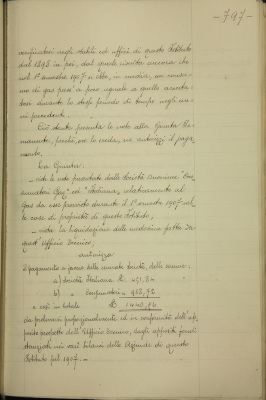 - 797 -
compiutori negli stabili ed uffici di questo Istituto
dal 1898 in poi, dal quale risulta ancora che
nel 1° semestre 1907 si ebbe, in media, un consu-
mo di gas quasi a pari eguale a quello accerta-
tosi durante lo stesso periodo di tempo negli an-
ni precedenti.
Ciò stante presenta le note alla Giunta Per-
manente, perchè, ove lo creda, ne autorizzi il paga-
mento.
La Giunta:
- viste le note presentate dalla Società Anonime "Con-
sumatori Gaz" ed "Italiana", relativamente al
gas da esse provvisto durante il 1° semestre 1907 nel-
le case di proprietà di questo Istituto,
- vista la liquidazione delle medesime fatta da
quest'Ufficio Tecnico;
autorizza
il pagamento a favore delle accennate Società, delle somme:
a) Società Italiana £ 451,84
b) " Consumatori "
e così in totale £
da prelevarsi proporzionalmente ed in conformità dell'ap-
posito prospetto dell'Ufficio Tecnico, dagli appositi fondi
stanziati nei vari bilanci delle Aziende di questo
Istituto pel 1907. -